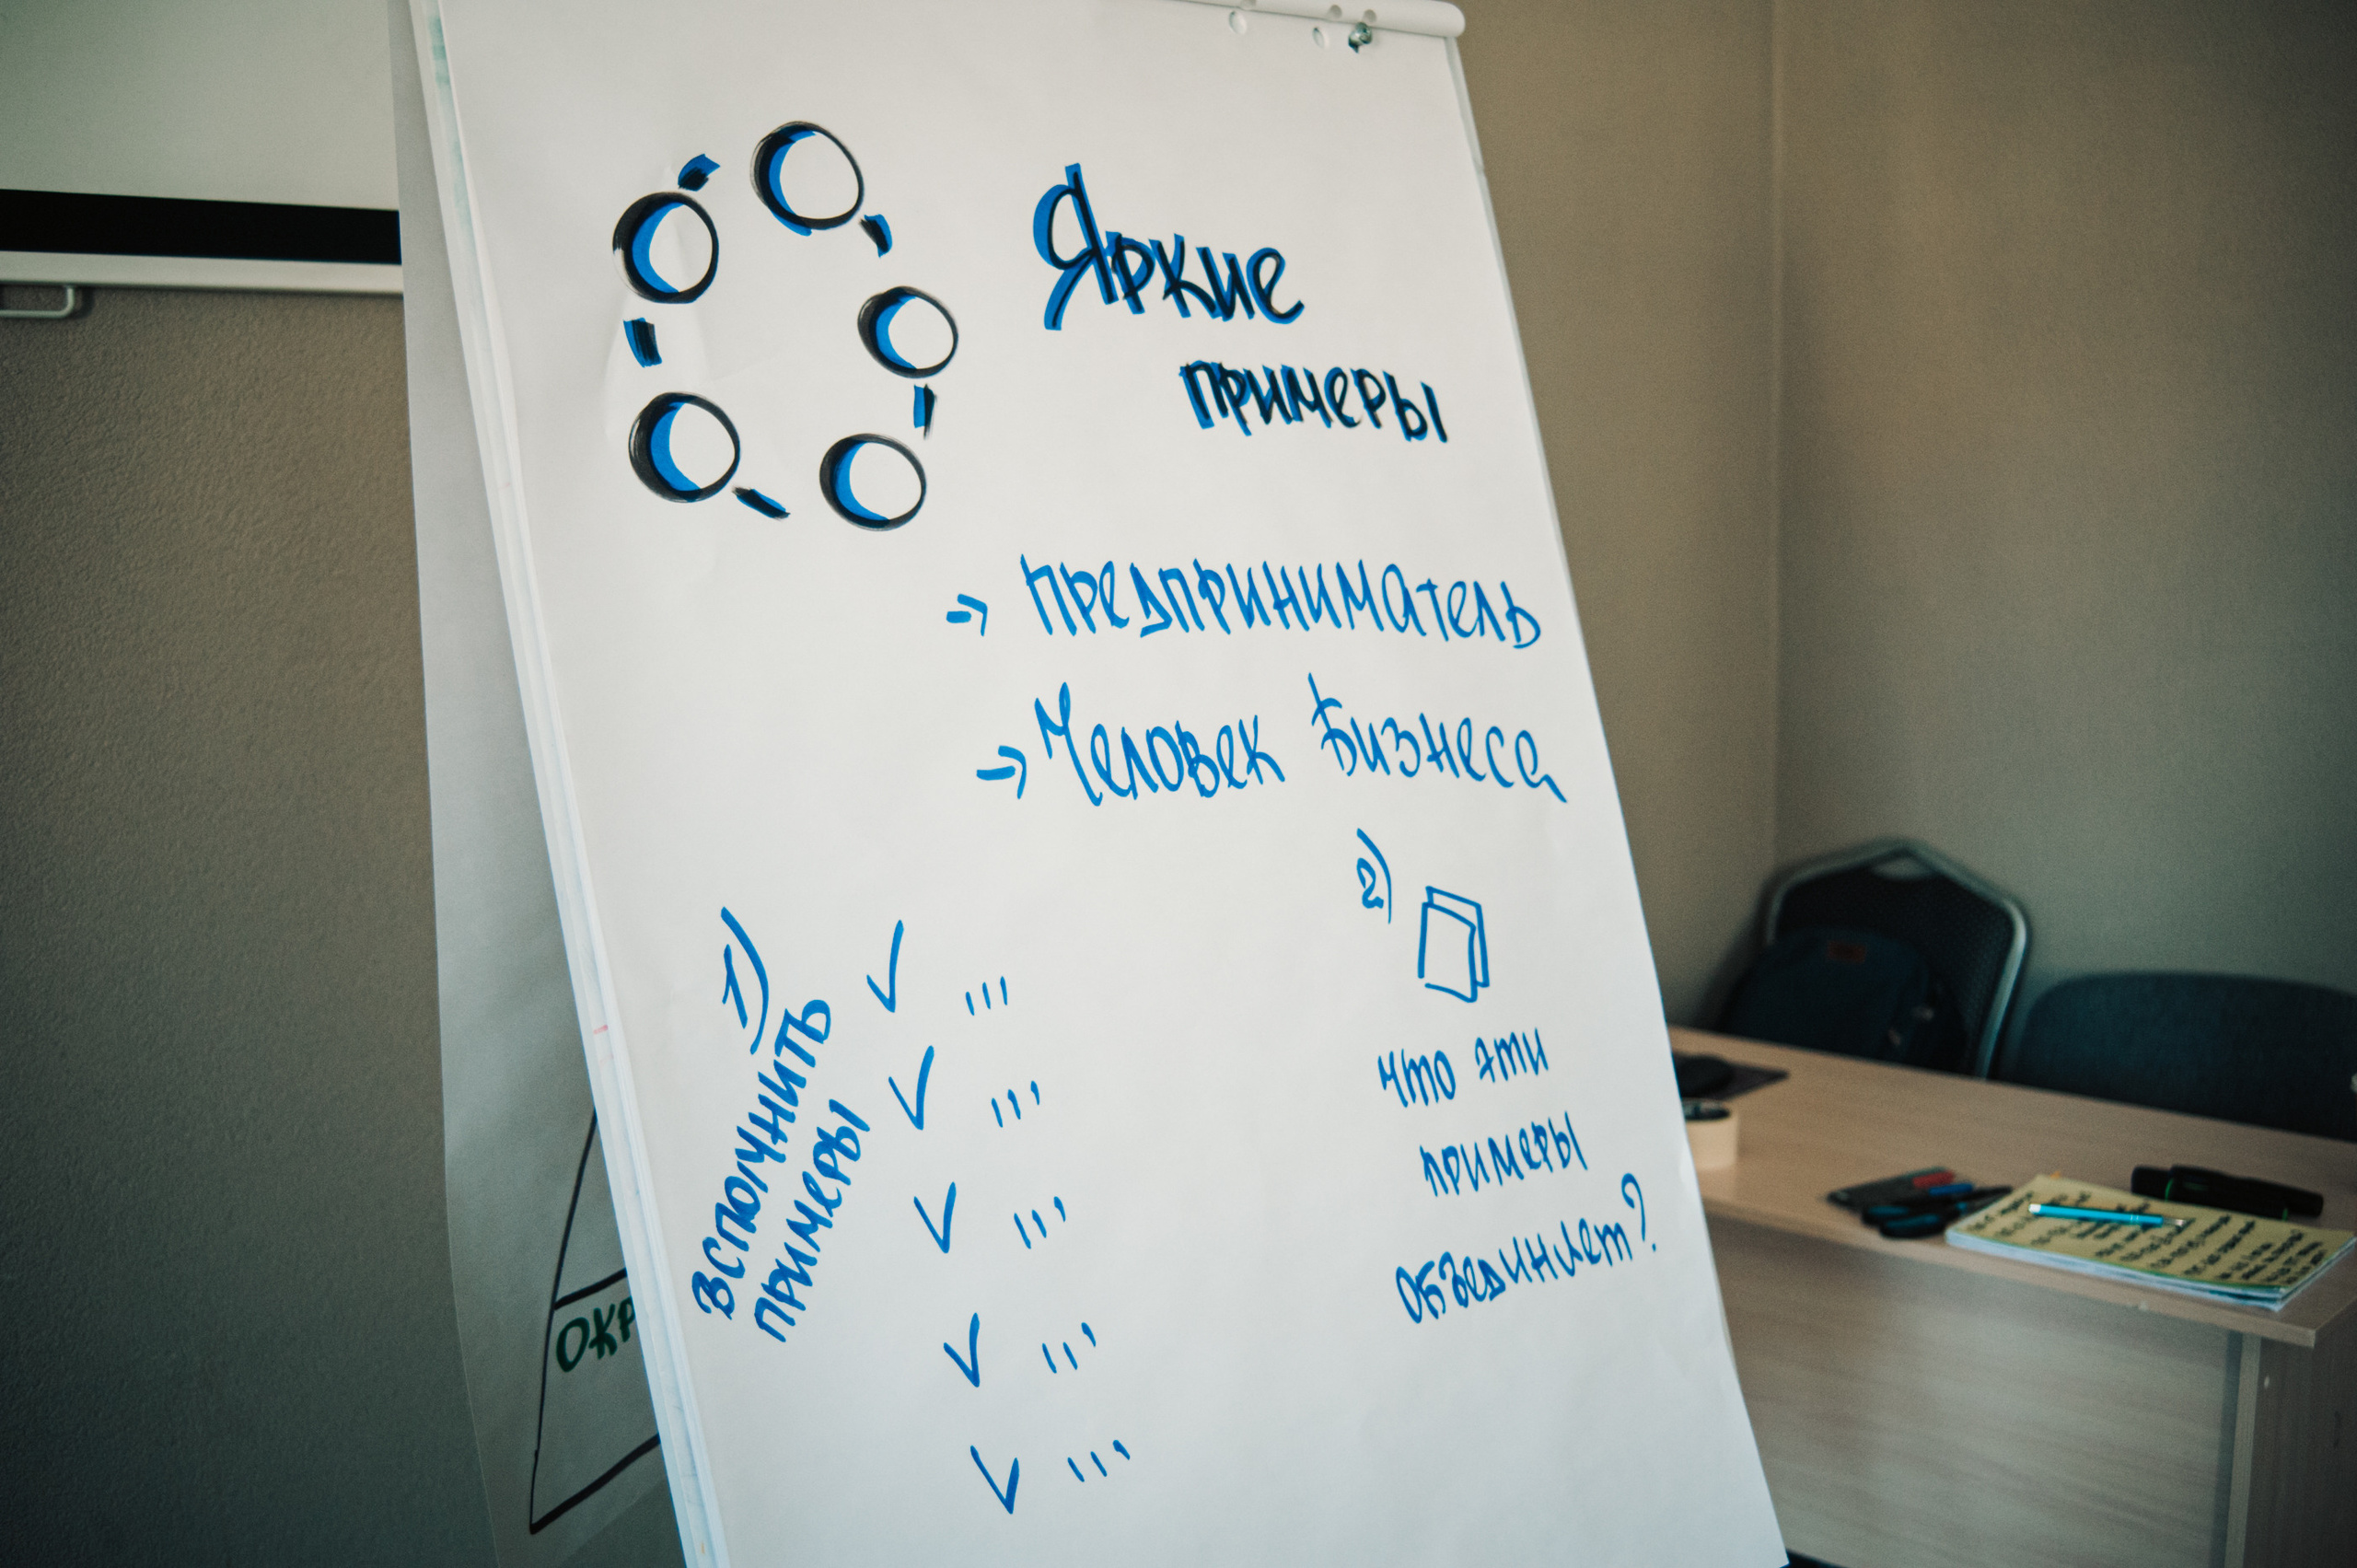 Яркие
примеры
→ Предприниматель
→ Человек Бизнеса
1) Вспомнить
примеры
✓ ,,,
✓ ,,,
✓ ,,,
✓ ,,,
✓ ,,,
2)
Что эти
примеры
объединяет?
ОКР